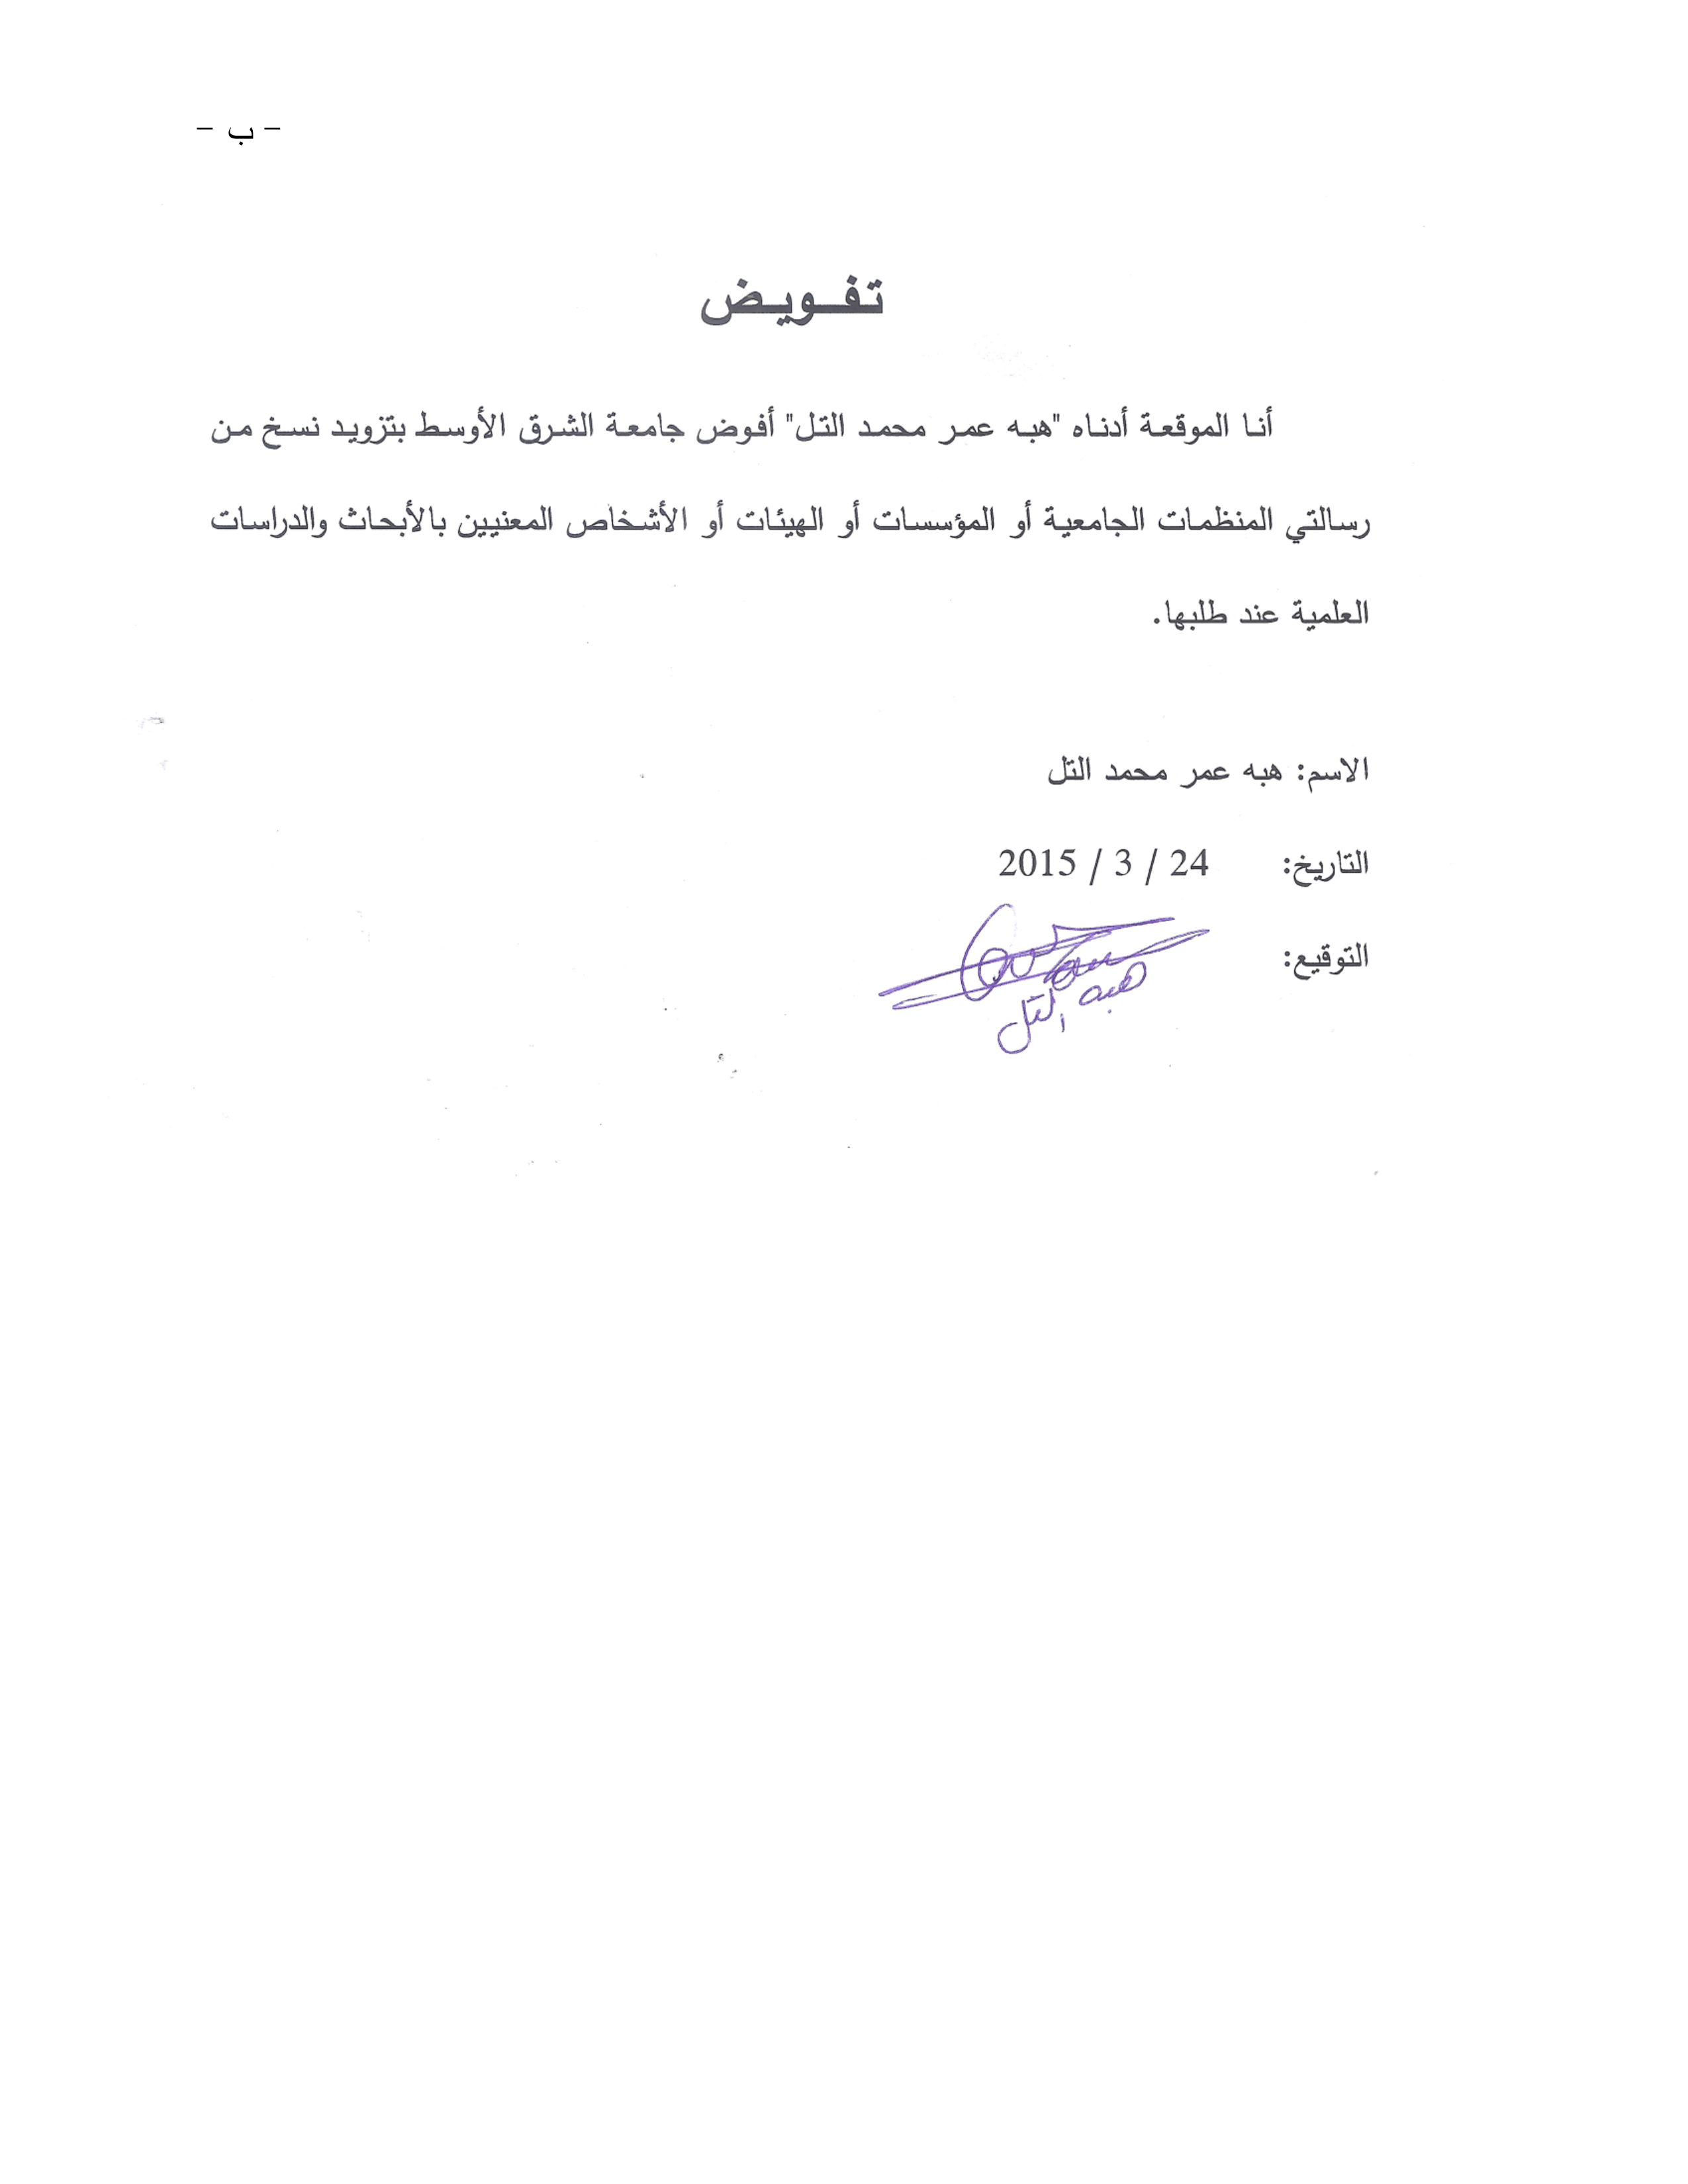 - ب -
تفويض
أنا الموقعة أدناه "هبه عمر محمد التل" أفوض جامعة الشرق الأوسط بتزويد نسخ من
رسالتي المنظمات الجامعية أو المؤسسات أو الهيئات أو الأشخاص المعنيين بالأبحاث والدراسات
العلمية عند طلبها.
الاسم: هبه عمر محمد التل
التاريخ: 24 / 3 / 2015
التوقيع:
هبه التل